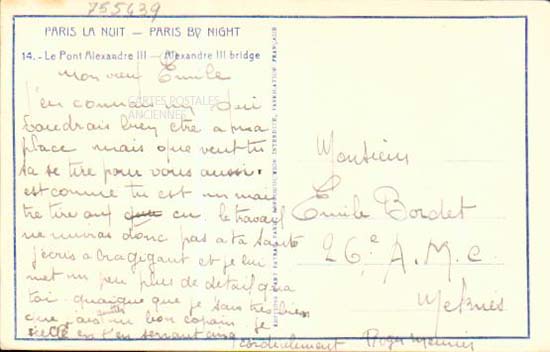 755439
PARIS LA NUIT — PARIS BY NIGHT
14. - Le Pont Alexandre III — Alexandre III bridge
CARTES POSTALES
ANCIENNES
Mon vieux Emile
J'en connais un qui
voudrais bien etre a ma
place mais que veut tu
sa se tire pour vous aussi.
est comme tu est un mai
tre tire au cu. le travail
ne nuiras donc pas a ta Santé
j'écris a Cragigant et je lui
met un peu plus de detail qua
toi quoique que je sans tres bien
que j'ais un bon copain je
en t'en serrant cinq
Cordialement Roger
Monsieur
Emile Bordet
26e A.M.C.
Meknes